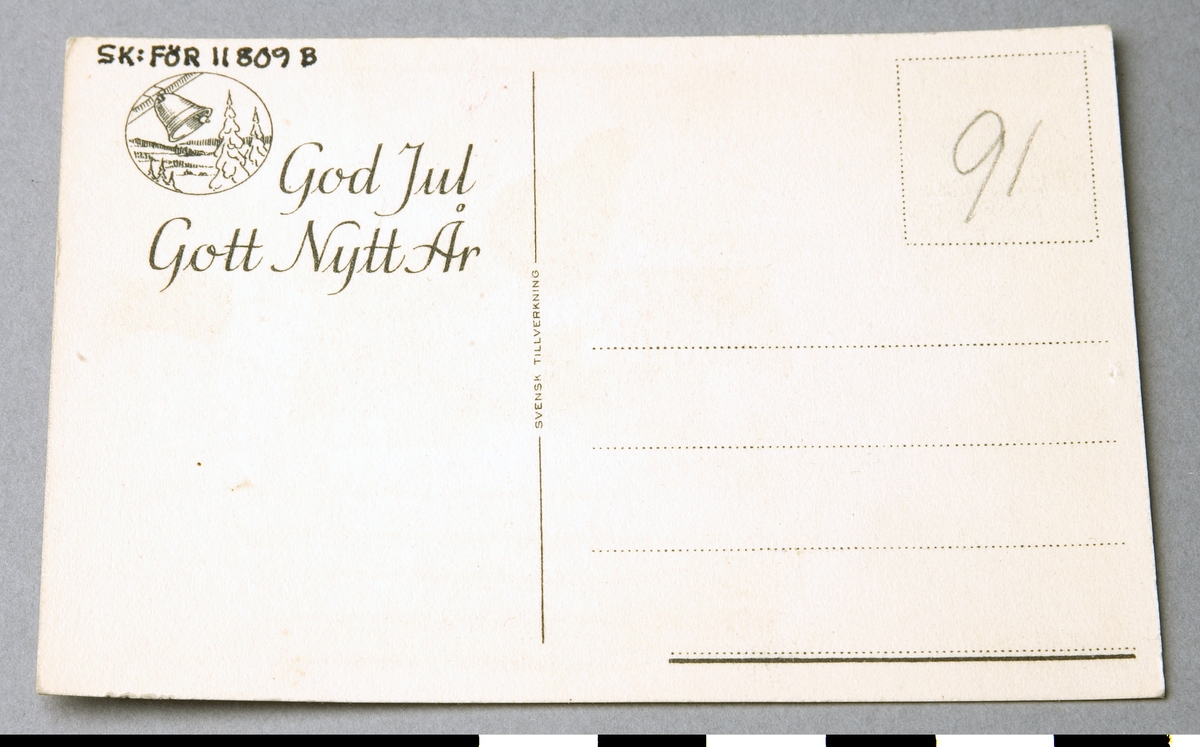 SK: FÖR 11809 B
God Jul
Gott Nytt År
SVENSK TILLVERKNING
91